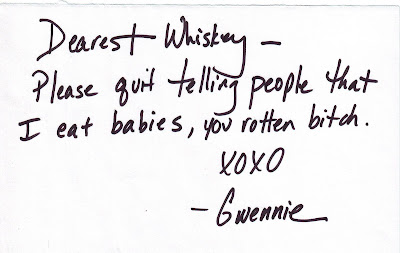 Dearest Whiskey —
Please quit telling people that
I eat babies, you rotten bitch.
XOXO
- Gwennie